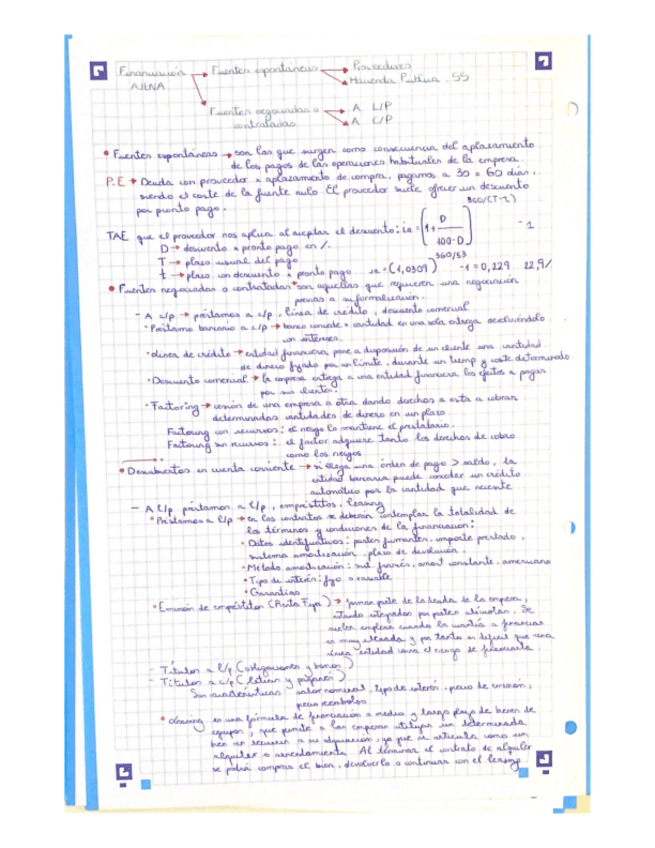 Financiación → Fuentes espontáneas → Proveedores
AJENA → Hacienda Pública . SS
Fuentes negociadas o → A L/P
contratadas → A C/P
• Fuentes espontáneas → son las que surgen como consecuencia del aplazamiento
de los pagos de las operaciones habituales de la empresa.
P.E → Deuda con proveedor x aplazamiento de compra, pagamos a 30 o 60 días,
siendo el coste de la fuente nulo. El proveedor suele ofrecer un descuento
por pronto pago.
TAE que el proveedor nos aplica al aceptar el descuento: ia = (1 + D / 100-D)^360/(T-t) - 1
D → descuento x pronto pago en %.
T → plazo usual del pago
t → plazo con descuento x pronto pago ia = (1,0309)^360/53 -1 = 0,229 22,9%
• Fuentes negociadas o contratadas → son aquellas que requieren una negociación
previa a su formalización.
- A c/p → préstamos a c/p, línea de crédito, descuento comercial
• Préstamo bancario a c/p → banco concede x cantidad en una sola entrega devolviéndolo
con intereses.
• Línea de crédito → entidad financiera, pone a disposición de un cliente una cantidad
de dinero fijado por un límite, durante un tiempo y coste determinado
• Descuento comercial → la empresa entrega a una entidad financiera los efectos a pagar
por sus clientes.
• Factoring → cesión de una empresa a otra dando derechos a esta a cobrar
determinadas cantidades de dinero en un plazo
Factoring con recursos: el riesgo lo mantiene el prestatario.
Factoring sin recursos: el factor adquiere tanto los derechos de cobro
como los riesgos
• Descubiertos en cuenta corriente → si llega una orden de pago > saldo, la
entidad bancaria puede conceder un crédito
automático por la cantidad que
- A L/p, préstamos a l/p, empréstitos, leasing
• Préstamos a l/p → En los contratos se deberán contemplar la totalidad de
los términos y condiciones de la financiación:
• Datos identificativos: partes firmantes, importe prestado,
sistema amortización, plazo de devolución.
• Método amortización: sist. francés, amort constante, americano
• Tipo de interés: fijo o variable
• Garantías
• Emisión de empréstitos (Renta Fija) → forman parte de la deuda de la empresa,
estando integrados por partes alícuotas. Se
suelen emplear cuando la cuantía a financiar
es muy elevada y por tanto es difícil que una
única entidad corra el riesgo de prestarla
- Títulos a l/p (obligaciones y bonos)
- Títulos a c/p (letras y pagarés)
Sus características: valor nominal, tipo de interés, precio de emisión,
precio reembolso
• Leasing es una fórmula de financiación a medio y largo plazo de bienes de
equipos, que permite a las empresas utilizar un determinado
bien sin recurrir a su adquisición, ya que se articula como un
alquiler o arrendamiento. Al terminar el contrato de alquiler
se podrá comprar el bien, devolverlo o continuar con el leasing